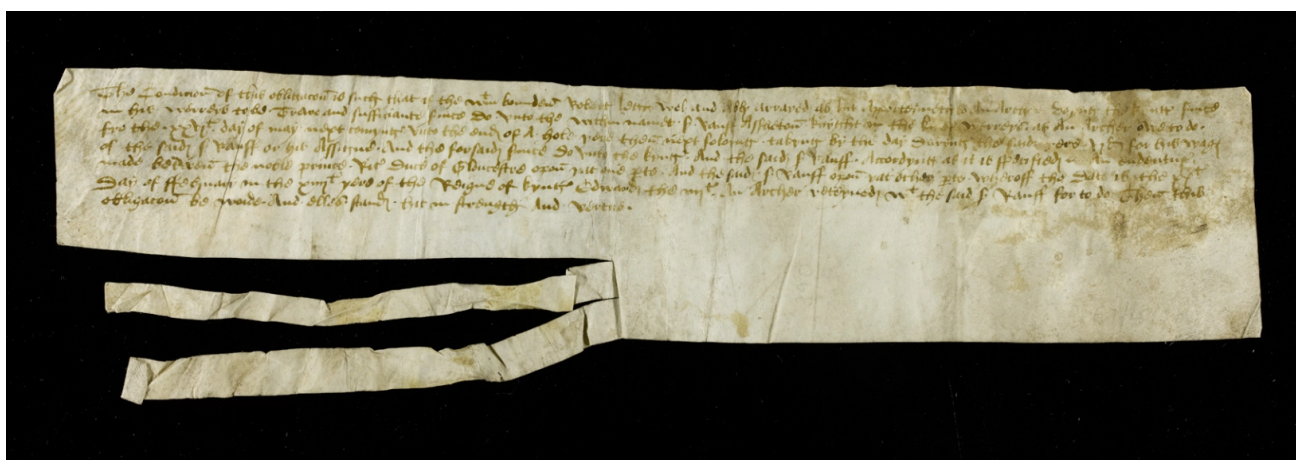 The Condicion of this obligacon is such that if the wtin bounden Robert wel and ably arrared as
in his werrers to be Trewe and sufficiante seruice Do vnto the within named S Rauff Assheton knyght or the at An Archer owe to do
fro the day of may next comyng vnto the end of A hole yere then next foloing taking by the day During the said yere vjd for his wagis
of the said S Rauff or his Assigne And the forsaid seruice Do vnto the king And the said S Rauff According as it is specified in An endentur
made betwen the noble prince Ric Duc of Gloucestre opon yat one pte And the said S Rauff opon yat other pte wheroff the Date is the
Day of ffebruarii in the yere of the Reigne of kyng Edward the iiijt An Archer reteyned wt the said S Rauff for to do Then this
obligacon be voide And elles stand hit in strength And vertue